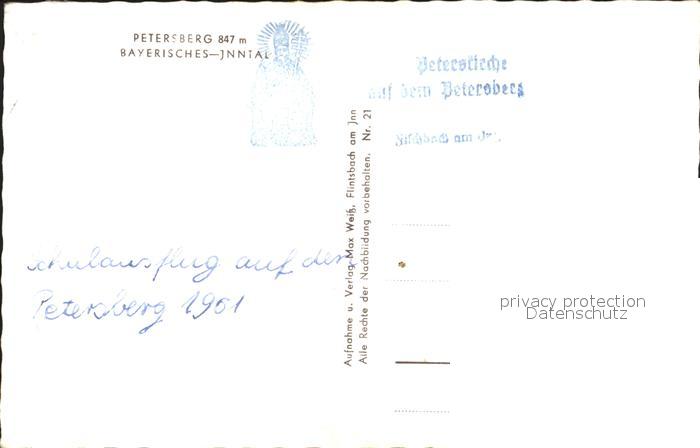 PETERSBERG 847 m
BAYERISCHES–JNNTAL
Peterskirche
auf dem Petersberg
am Jnn
Aufnahme u. Verlag Max Weiß, Flintsbach am Jnn
Alle Rechte der Nachbildung vorbehalten. Nr. 21
Schulausflug auf den
Petersberg 1961
privacy protection
Datenschutz